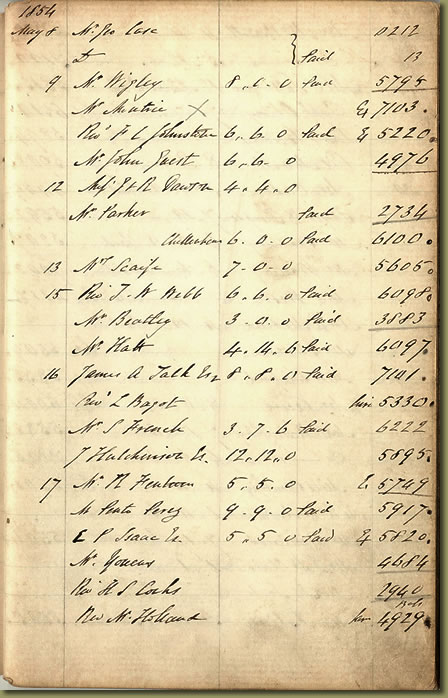 1854
May 8 Mr Geo Case 0212
Do } Paid 13
9 Mr Wigley 8 . 6 . 0 Paid 5795
Mr Mintrie X Ex 7103 .
Revd F C Johnstone 6 . 6 . 0 Paid Ex 5220 .
Mr John Guest 6 . 6 . 0 4976
12 4 . 4 . 0
Mr Parker Paid 2734
Cheltenham 6 . 0 . 0 Paid 6100 .
13 Mr Scaife 7 - 0 - 0 5605 .
15 Revd T. W Webb 6 . 6 . 0 Paid 6098 .
Mr Beatley 3 . 0 . 0 Paid 3883
Mr Hatt 4 . 14 . 6 Paid 6097 .
16 James A Talk Esq 8 . 8 . 0 Paid 7141 .
Revd L Bagot hire 5330 .
Mr S French 3 - 7 - 6 Paid 6222
J Hutchinson Es. 12 . 12 . 0 5895 .
17 Mr R 5 . 5 . 0 Ex 5749
9 - 9 . 0 Paid 5917
E P Isaac Es. 5 . 5 . 0 Paid Ex 5820 .
Mr 4684
Revd H S Cocks 2940
Revd Mr Holland 4929 .